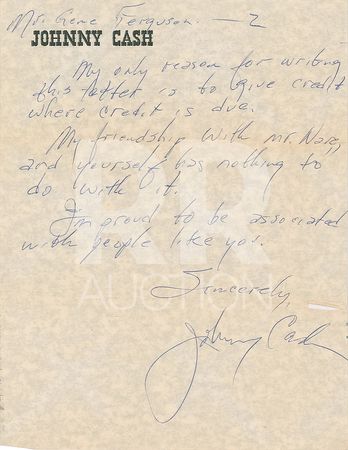 Mr. Gene Ferguson. — 2
JOHNNY CASH
My only reason for writing
this letter is to give credit
where credit is due.
My friendship with mr. Nara,
and yourself has nothing to
do with it.
I'm proud to be associated
with people like you.
Sincerely,
Johnny Cash
RR
AUCTION